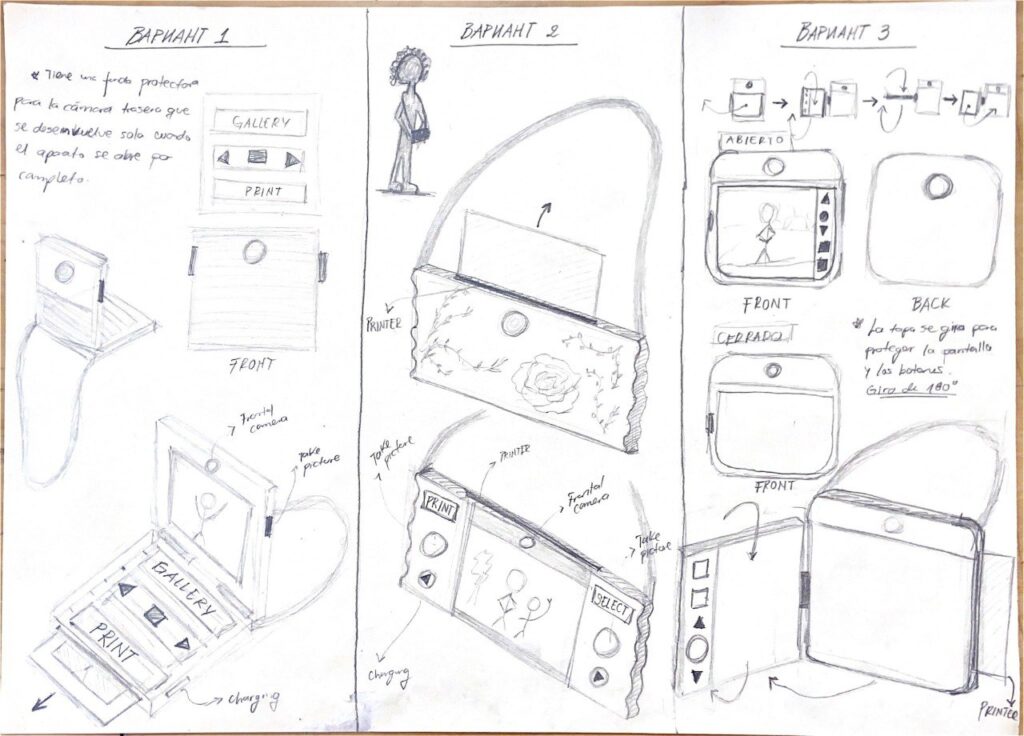 ВАРИАНТ 1
* Tiene una funda protectora
para la cámara trasera que
se desenvuelve sola cuando
el aparato se abre por
completo.
GALLERY
PRINT
FRONT
Frontal
camera
Take
picture
GALLERY
PRINT
Charging
ВАРИАНТ 2
PRINTER
Take
picture
PRINTER
Frontal
camera
Take
picture
PRINT
SELECT
Charging
ВАРИАНТ 3
ABIERTO
FRONT
BACK
CERRADO
* La tapa se gira para
proteger la pantalla
y los botones.
Giro de 180°
FRONT
PRINTER